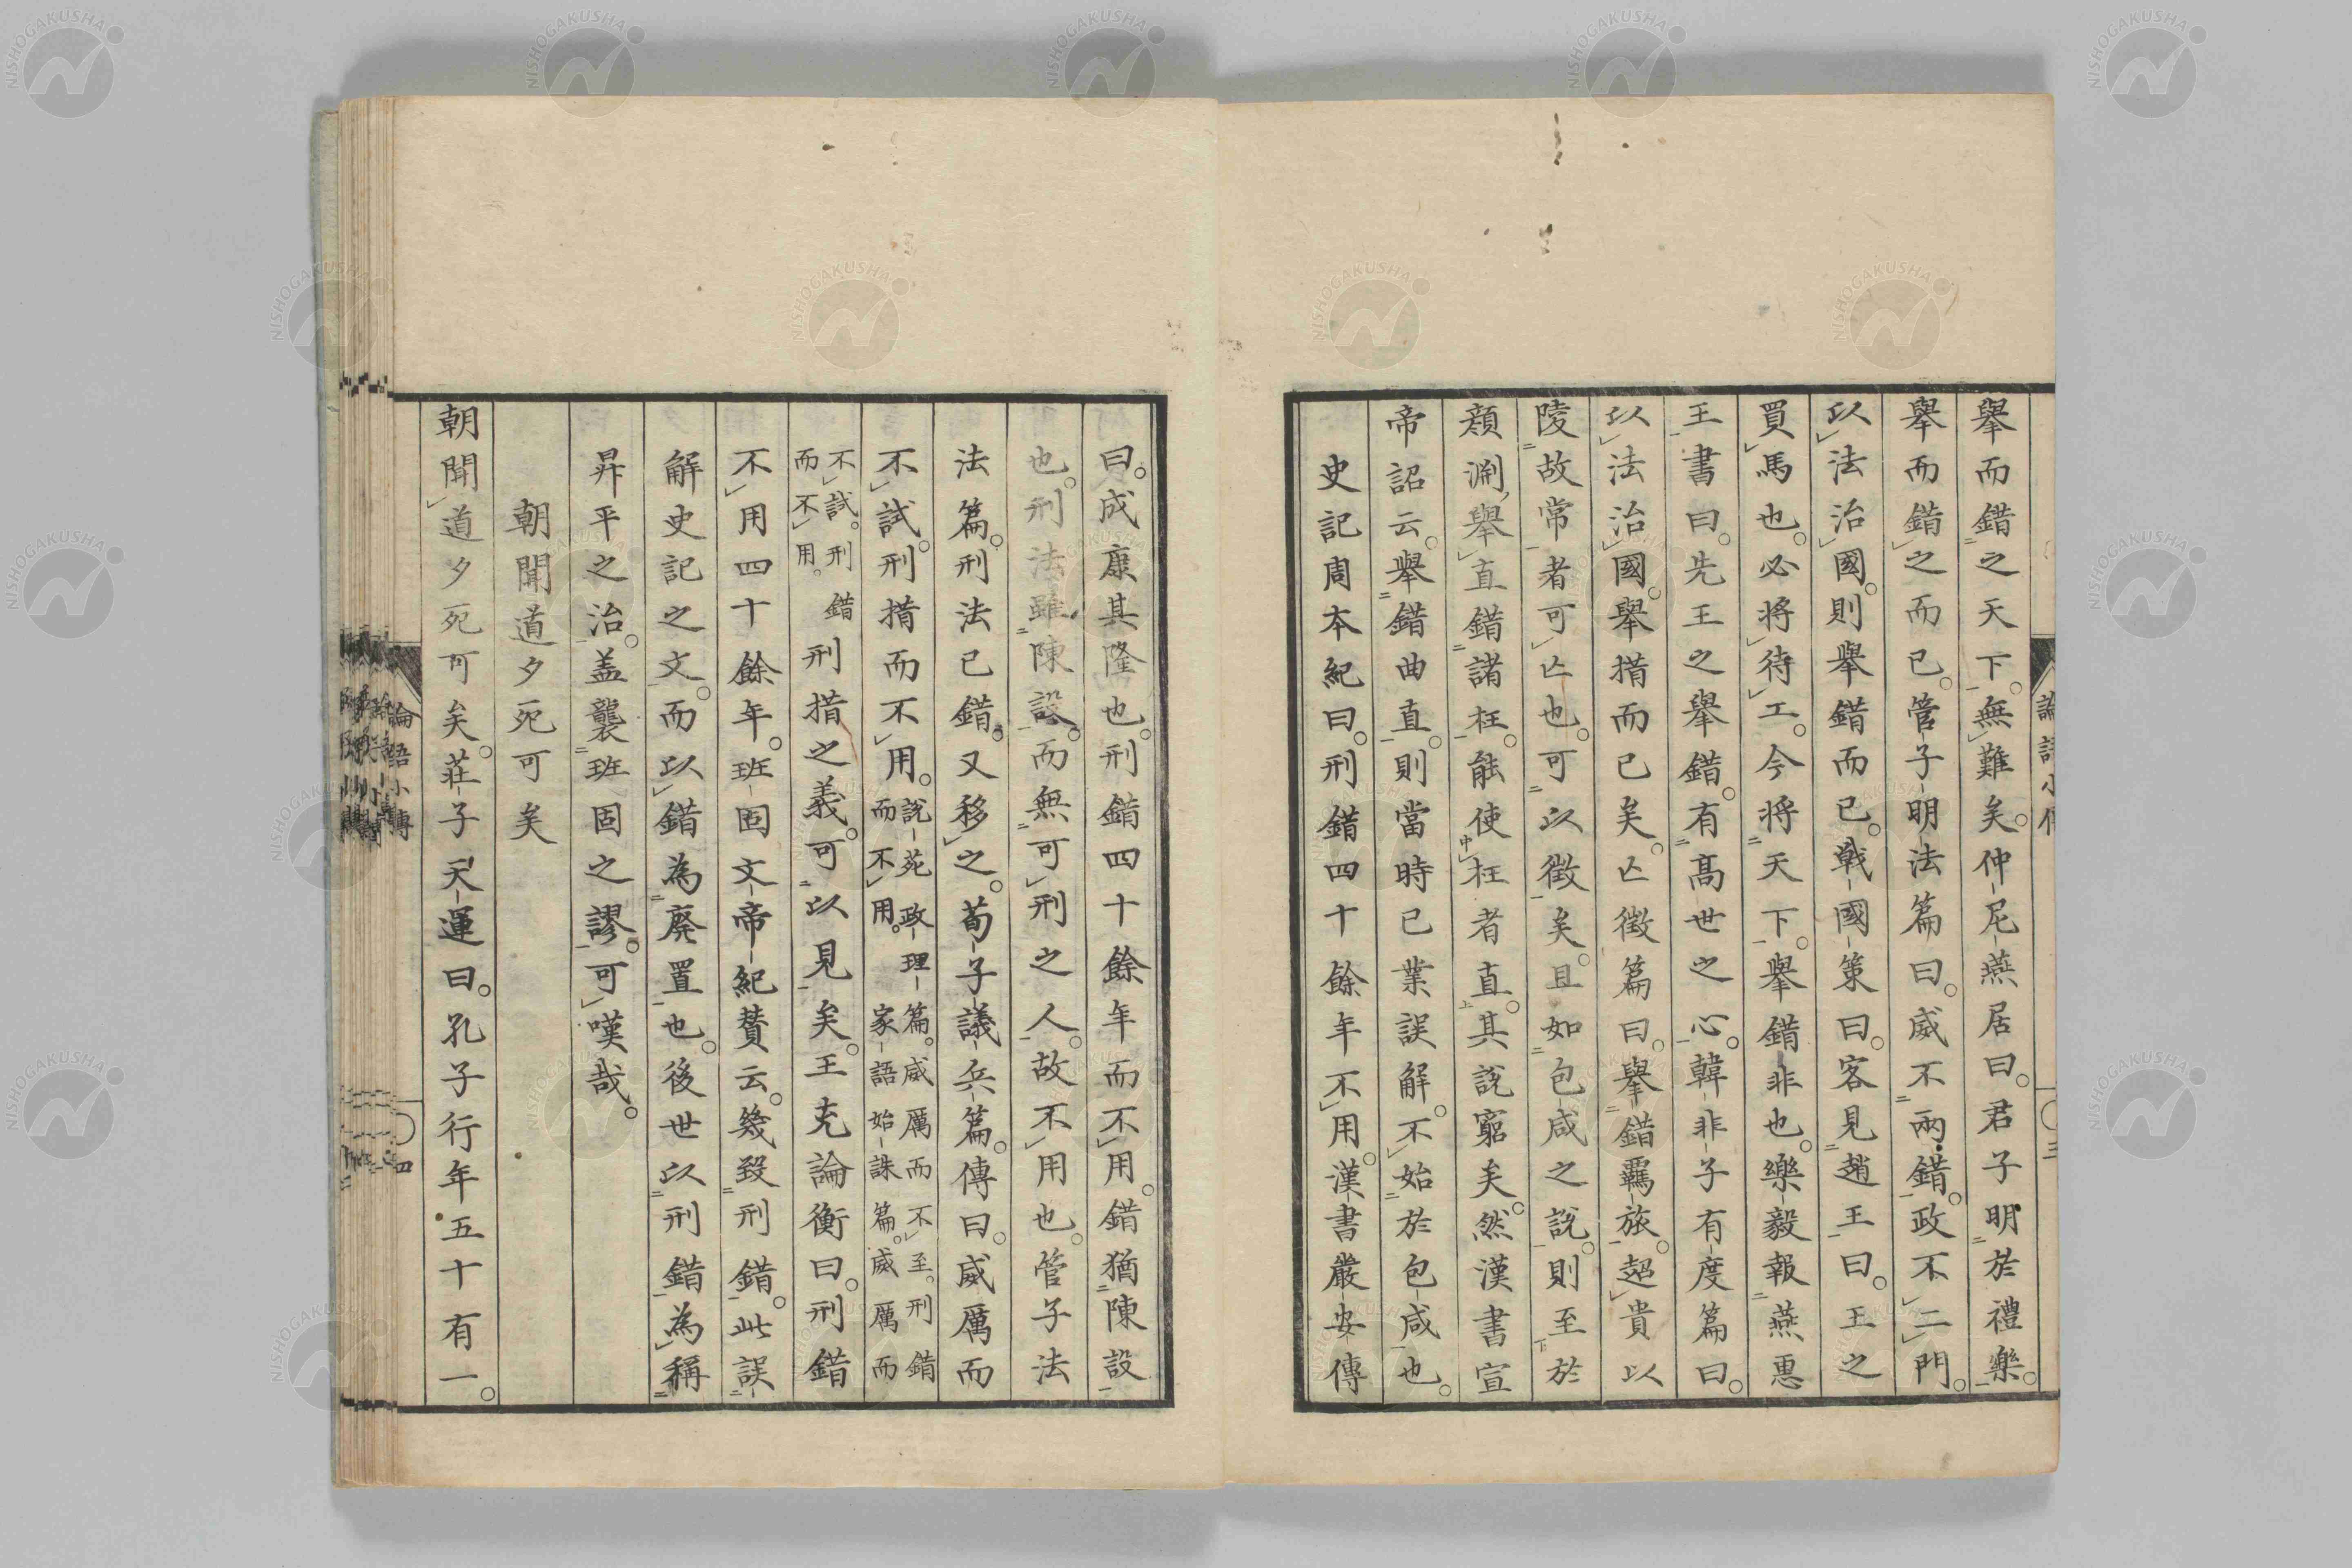 擧而錯之天下無難矣仲尼燕居曰君子明於禮樂
擧而錯之而已管子明法篇曰威不兩錯政不二門
以法治國則擧錯而已戰國策曰客見趙王曰王之
買馬也必將待工今將天下擧錯非也樂毅報燕惠
王書曰先王之擧錯有髙世之心韓非子有度篇曰
以法治國擧措而已矣亾徵篇曰擧錯羈旅超貴以
陵故常者可亾也可以徴矣且如包咸之說則至於
頽涮擧直錯諸枉能使枉者直其說窮矣然漢書宣
帝詔云擧錯曲直則當時已業誤解不始於包咸也
史記周本紀曰刑錯四十餘年不用漢書嚴安傳
論語小傳
三
曰成康其隆也刑錯四十餘年而不用錯猶陳設
也刑法雖陳設而無可刑之人故不用也管子法
法篇刑法已錯又移之荀子議兵篇傳曰威厲而
不試刑措而不用說苑政理篇威厲而不至刑錯
而不用家語始誅篇威厲而
不試刑錯
而不用刑措之義可以見矣王充論衡曰刑錯
不用四十餘年班固文帝紀賛云幾致刑錯此誤
解史記之文而以錯為廃置也後世以刑錯為稱
昇平之治盖襲班固之謬可嘆哉
朝聞道夕死可矣
朝聞道夕死可矣莊子天運曰孔子行年五十有一
論語小傳
四